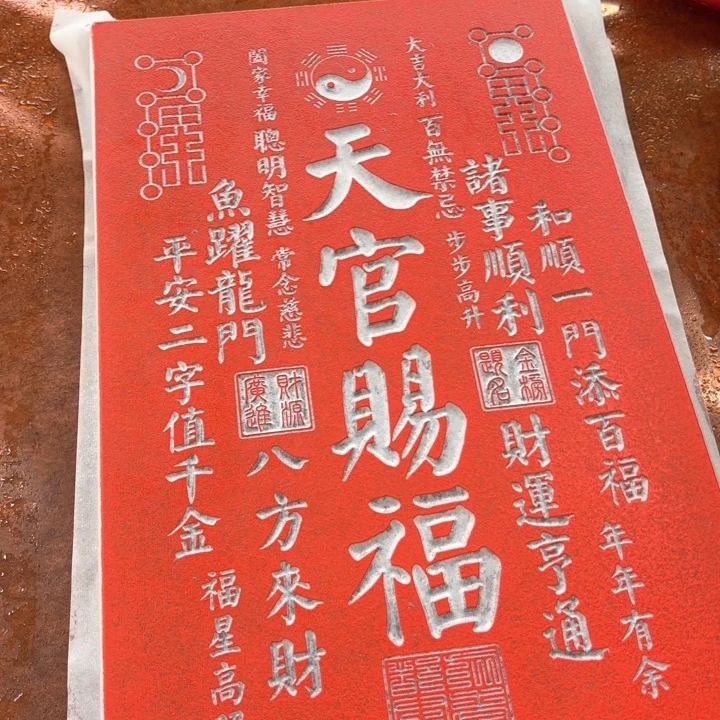 天官賜福
大吉大利
百無禁忌
步步高升
諸事順利
金榜題名
財運亨通
和順一門添百福
年年有余
闔家幸福
聰明智慧
常念慈悲
魚躍龍門
財源廣進
八方來財
平安二字值千金
福星高